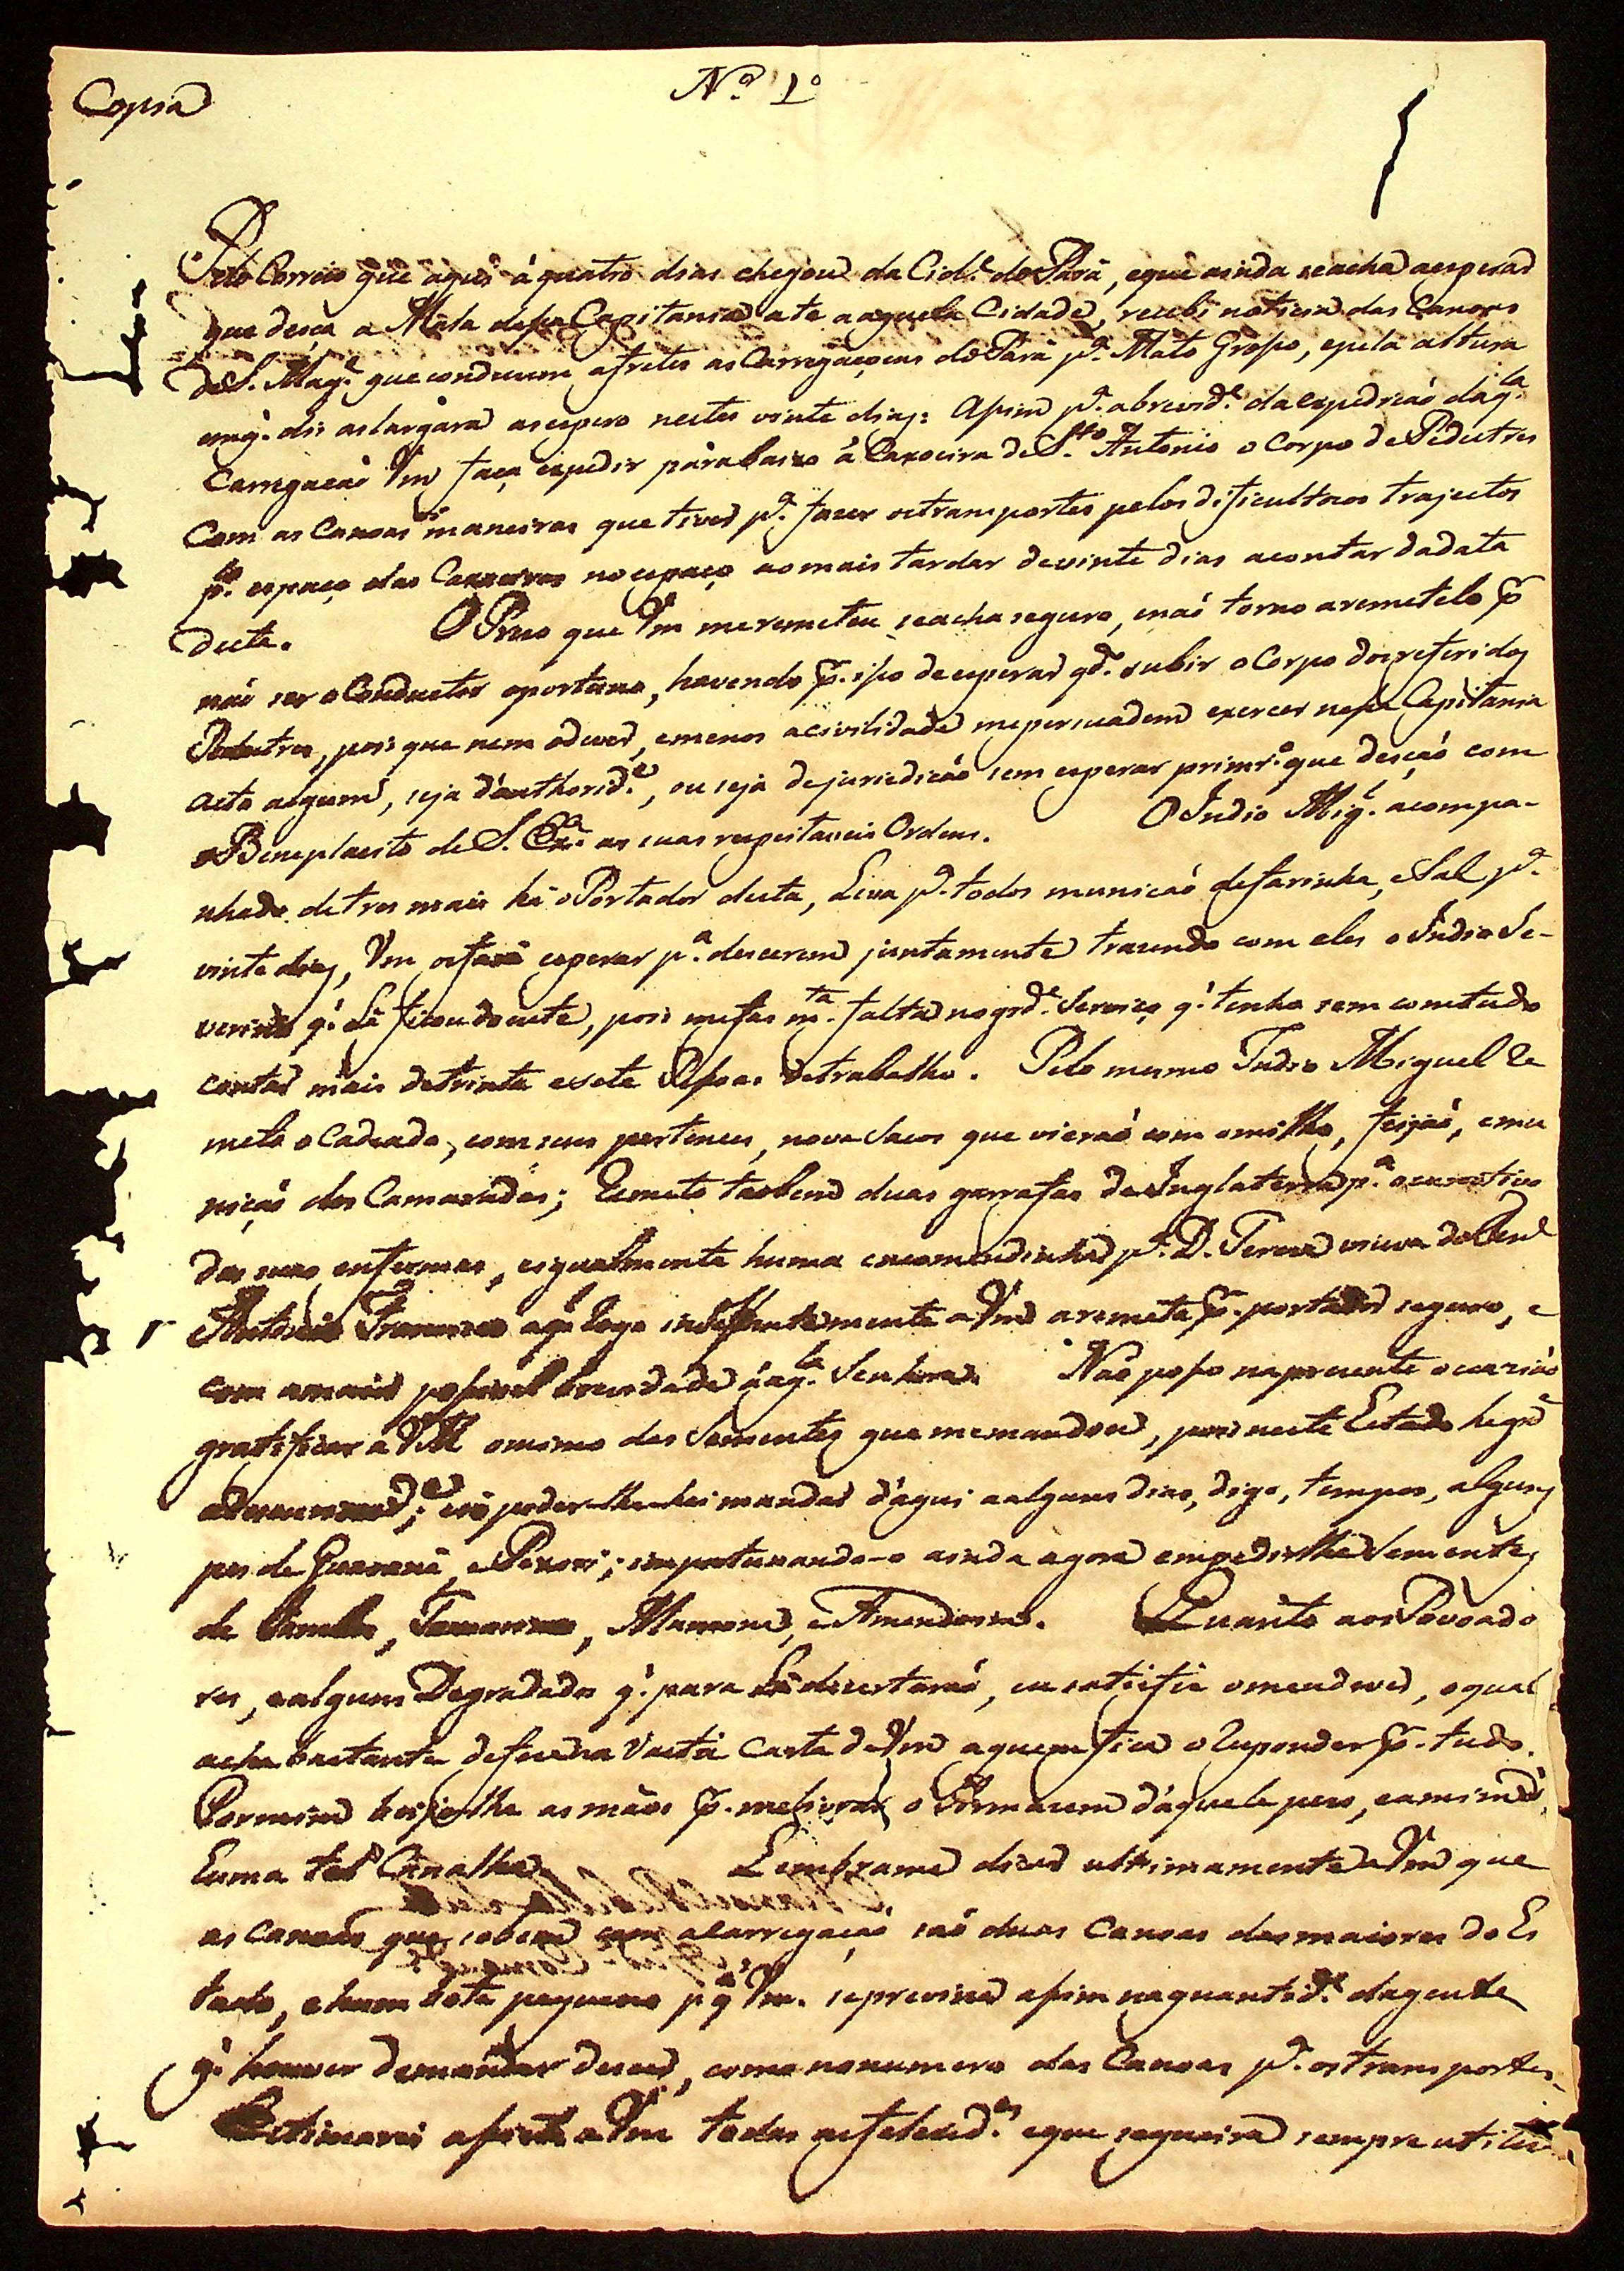 Copia
Nº 1º
Pelo Correio que aqui á quatro dias chegou da Cide. do Pará, eque ainda seacha aesperar
que desça a Mala desta Capitania ate aaquela Cidade, recebi noticia das Canoas
de S. Mage. que conduzem afretes as Carregaçoens do Pará pa. Mato Grosso, epela altura
emq. dis aslargára asespero nestes vinte dias: Assim pa. abrevide. da expedição daqla.
Carregação Vm faça expedir párabaixo á Caxoeira de Sto. Antonio o Corpo de Pedestres
Com as Canoas maneiras que tiver pa. fazer ostransportes pelos dificultozos trajectos
po. espaço das Caxoeiras no espaço aomais tardar devinte dias acontar dadata
desta. O Prezo que Vm meremeteu seacha seguro, enaõ torno aremetelo p.
naõ ser o Conductor oportuno, havendo p. isso deesperar qdo. subir o Corpo dosreferidos
Pedestres, pois que nem odever, emenos acivilidade mepersuadem exercer nessa Capitania
acto algum, seja d'authoride., ou seja dejurisdicaõ sem esperar primro. que desçaõ com
oBeneplacito de S. Exa. as suas respeitaveis Ordens. O Indio Migl. acompa-
nhado detres mais hé oPortador desta, Leva pa. todos municaõ defarinha, eSal pa.
vinte dias, Vm osfará esperar pa. descerem juntamente trazendo com eles o Indio Se-
verino q. Lá ficou doente, pois mefas mta. falta nogrde. Serviço q. tenho sem comtudo
contar mais detrinta esete Pessoas detrabalho. Pelo mesmo Indio Miguel Re
meto o Cadeado, com seus pertences, nove Sacos que vieraõ com omilho, feijaõ, emu
niçaõ dos Camaradas; Remeto taobem duas garrafas de Inglaterra pa. ocurativo
dos seus enfermos, eigualmente huma encomendinha pa. D. Tereza viuva do
Antonio Francisco aqal. Rogo a Vm aremeta p. portador seguro, e
com amais possivel brevidade áaqla. Senhora. Naõ posso napresente ocaziaõ
gratificar a VM omimo das Sementes que memandou, pois neste Estado
poder-lhe-hei mandar d'aqui aalguns dias, digo, tempos, alguns
pes de Guaraná, e; importunando-o ainda agora empedirlhe Sementes
de, Tamarino, Mamona, e Amendoim. Quanto aosPovoado
res, ealguns Degradados q. para Lá dezertaraõ, eu satisfis omeudever, oqual
acha bastante defeza na vasta Carta deVm aquemfica oResponder p. tudo.
Pormim beijolhe as mãos p. melivrar o Armazem d'aquele pezo, eamim d'
huma tal Canalha. Lembrame dizer ultimamente aVm que
as Canoas que sobem com aCarregaçaõ saõ duas Canoas dasmaiores do Es
tado, ehum bote pequeno pa. q Vm. seprevina assim naquantide. dagente
q. houver demandar descer, como nonumero das Canoas pa. ostransportes.
Estimarei asista aVm todas asfelicides. eque sequeira sempre utilizar